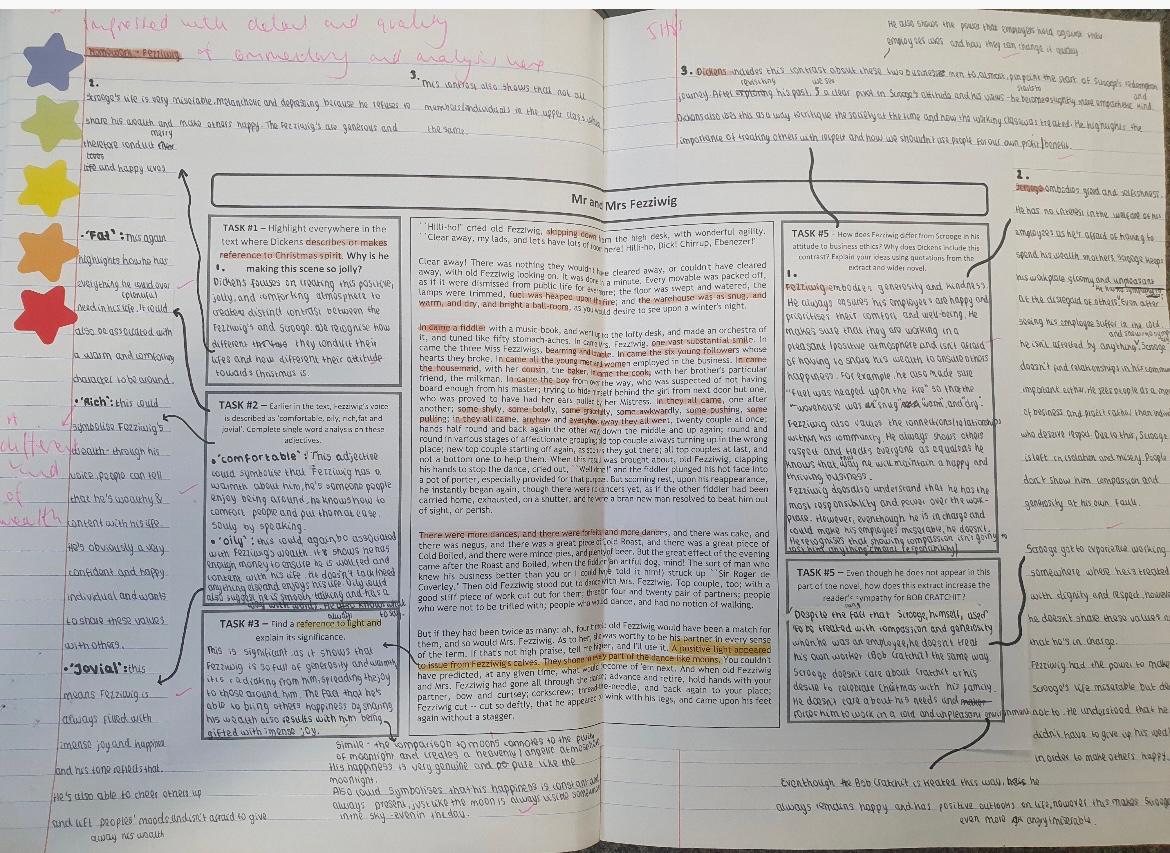 Impressed with detail and quality
of commentary and analysis here
Homework - Fezziwig
2.
Scrooge's life is very miserable, melancholic and depressing because he refuses to
share his wealth and make others happy. The Fezziwig's are generous and
therefore conduct
merry
life and happy lives
3.
This contrast also shows that not all
members/individuals in the upper class
the same.
He also shows the power that employers hold against their
employees lives and how they can change it away.
3. Dickens includes this contrast about these two business men to almost pin point the start of Scrooge's redemption
journey. After revisiting his past, we see a clear pivot in Scrooge's attitude and his views - he becomes slightly more empathetic and kind.
Dickens also uses this as a way to critique the society at the time and how the working class was treated. He highlights the
importance of treating others with respect and how we shouldn't use people for our own profit/benefit.
Mr and Mrs Fezziwig
TASK #1 – Highlight everywhere in the
text where Dickens describes or makes
reference to Christmas spirit. Why is he
making this scene so jolly?
1.
Dickens focuses on creating this positive,
jolly, and comforting atmosphere to
create a distinct contrast between the
Fezziwig's and Scrooge. We recognise how
different they conduct their
lifes and how different their attitude
towards Christmas is.
TASK #2 – Earlier in the text, Fezziwig's voice
is described as 'comfortable, oily, rich, fat and
jovial'. Complete single word analysis on these
adjectives.
•'comfortable': This adjective
could symbolise that Fezziwig has a
warmth about him, he's someone people
enjoy being around, he knows how to
comfort people and put them at ease.
Souly by speaking.
•'oily': this could again be associated
with Fezziwig's wealth. It shows he has
enough money to ensure he is worked and
content with his life. He doesn't
anything else and enjoys his life. Oily could
also suggest he is smooth talking and has a
TASK #3 – Find a reference to light and
explain its significance.
This is significant as it shows that
Fezziwig is so full of generosity and warmth
it is radiating from him, spreading the joy
to those around him. The fact that he's
able to bring others happiness by sharing
his wealth also results with him being
gifted with imense joy.
•'Fat': This again
highlights how he has
everything he could ever
need in his life. It could
plentiful
also be associated with
a warm and comforting
character to be around.
•'Rich': this could
symbolise Fezziwig's
wealth - through his
voice, people can tell
that he's wealthy &
content with his life.
He's obviously a very
confident and happy
individual and wants
to share these values
with others.
•'Jovial': this
means Fezziwig is
always filled with
imense joy and happiness
and his tone reflects that.
He's also able to cheer others up
and lift peoples' moods and isn't afraid to give
away his wealth
A
different
kind
of
wealth
``Hilli-ho!' cried old Fezziwig, skipping down from the high desk, with wonderful agility.
``Clear away, my lads, and let's have lots of room here! Hilli-ho, Dick! Chirrup, Ebenezer!'
Clear away! There was nothing they wouldn't have cleared away, or couldn't have cleared
away, with old Fezziwig looking on. It was done in a minute. Every movable was packed off,
as if it were dismissed from public life for evermore; the floor was swept and watered, the
lamps were trimmed, fuel was heaped upon the fire; and the warehouse was as snug, and
warm, and dry, and bright a ball-room, as you would desire to see upon a winter's night.
In came a fiddler with a music-book, and went up to the lofty desk, and made an orchestra of
it, and tuned like fifty stomach-aches. In came Mrs Fezziwig, one vast substantial smile. In
came the three Miss Fezziwigs, beaming and lovable. In came the six young followers whose
hearts they broke. In came all the young men and women employed in the business. In came
the housemaid, with her cousin, the baker. In came the cook, with her brother's particular
friend, the milkman. In came the boy from over the way, who was suspected of not having
board enough from his master; trying to hide himself behind the girl from next door but one,
who was proved to have had her ears pulled by her Mistress. In they all came, one after
another; some shyly, some boldly, some gracefully, some awkwardly, some pushing, some
pulling; in they all came, anyhow and everyhow. Away they all went, twenty couple at once;
hands half round and back again the other way; down the middle and up again; round and
round in various stages of affectionate grouping; old top couple always turning up in the wrong
place; new top couple starting off again, as soon as they got there; all top couples at last, and
not a bottom one to help them. When this result was brought about, old Fezziwig, clapping
his hands to stop the dance, cried out, ``Well done!' and the fiddler plunged his hot face into
a pot of porter, especially provided for that purpose. But scorning rest, upon his reappearance,
he instantly began again, though there were no dancers yet, as if the other fiddler had been
carried home, exhausted, on a shutter, and he were a bran new man resolved to beat him out
of sight, or perish.
There were more dances, and there were forfeits, and more dances, and there was cake, and
there was negus, and there was a great piece of Cold Roast, and there was a great piece of
Cold Boiled, and there were mince pies, and plenty of beer. But the great effect of the evening
came after the Roast and Boiled, when the fiddler (an artful dog, mind! The sort of man who
knew his business better than you or I could have told it him!) struck up ``Sir Roger de
Coverley.'' Then old Fezziwig stood out to dance with Mrs. Fezziwig. Top couple, too; with a
good stiff piece of work cut out for them; three or four and twenty pair of partners; people
who were not to be trifled with; people who would dance, and had no notion of walking.
But if they had been twice as many: ah, four times: old Fezziwig would have been a match for
them, and so would Mrs. Fezziwig. As to her, she was worthy to be his partner in every sense
of the term. If that's not high praise, tell me higher, and I'll use it. A positive light appeared
to issue from Fezziwig's calves. They shone in every part of the dance like moons. You couldn't
have predicted, at any given time, what would become of 'em next. And when old Fezziwig
and Mrs. Fezziwig had gone all through the dance; advance and retire, hold hands with your
partner, bow and curtsey; corkscrew; thread-the-needle, and back again to your place;
Fezziwig cut -- cut so deftly, that he appeared to wink with his legs, and came upon his feet
again without a stagger.
Simile - the comparison to moons connotes to the purity
of moonlight and creates a heavenly/angelic atmosphere
His happiness is very genuine and pure like the
moonlight.
Also could symbolises that his happiness is constant and
always present, just like the moon is always visible somewhere
in the sky - even in the day.
TASK #5 - How does Fezziwig differ from Scrooge in his
attitude to business ethics? Why does Dickens include this
contrast? Explain your ideas using quotations from the
extract and wider novel.
1.
Fezziwig embodies generosity and kindness.
He always ensures his employees are happy and
prioritises their comfort and well-being. He
makes sure that they are working in a
pleasant/positive atmosphere and isn't afraid
of having to share his wealth to ensure others
happiness. For example, he also made sure
"fuel was heaped upon the fire" so that the
warehouse was as snug, warm, and dry'.
Fezziwig also values the connections/relationships
within his community. He always shows others
respect and treats everyone as equals as he
knows that way he will maintain a happy and
thriving business.
Fezziwig does also understand that he has the
most responsibility and power over the work-
place. However, eventhough he is in charge and
could make his employees miserable, he doesn't.
He recognises that showing compassion isn't going to
loss him anything (moral responsibility)
TASK #5 – Even though he does not appear in this
part of the novel, how does this extract increase the
reader's sympathy for BOB CRATCHIT?
Despite the fact that Scrooge, himself, used
to be treated with compassion and generosity
when he was an employee, he doesn't treat
his own worker (Bob Cratchit) the same way.
Scrooge doesn't care about Cratchit or his
desire to celebrate Christmas with his family.
He doesn't care about his needs and
forces him to work in a cold and unpleasant environment
2.
Scrooge embodies greed and selfishness.
He has no interest in the welfare of his
employees as he's afraid of having to
spend his wealth on others. Scrooge keeps
his workplace gloomy and unpleasant
at the disregard of others. Even after
seeing his employee suffer in the cold,
he isn't affected by anything'. Scrooge
doesn't find relationships in his community
important either. He sees people as a means
of business and profit rather than individuals
who deserve respect. Due to this, Scrooge
is left in isolation and misery. People
don't show him compassion and
generosity at his own fault.
Scrooge got to experience working
somewhere where he's treated
with dignity and respect, however
he doesn't share these values now
that he's in charge.
Fezziwig had the power to make
Scrooge's life miserable but decided
not to. He understood that he
didn't have to give up his wealth
in order to make others happy.
Eventhough the Bob Cratchit is treated this way, he
always remains happy and has positive outlooks on life, however this makes Scrooge
even more angry/miserable.